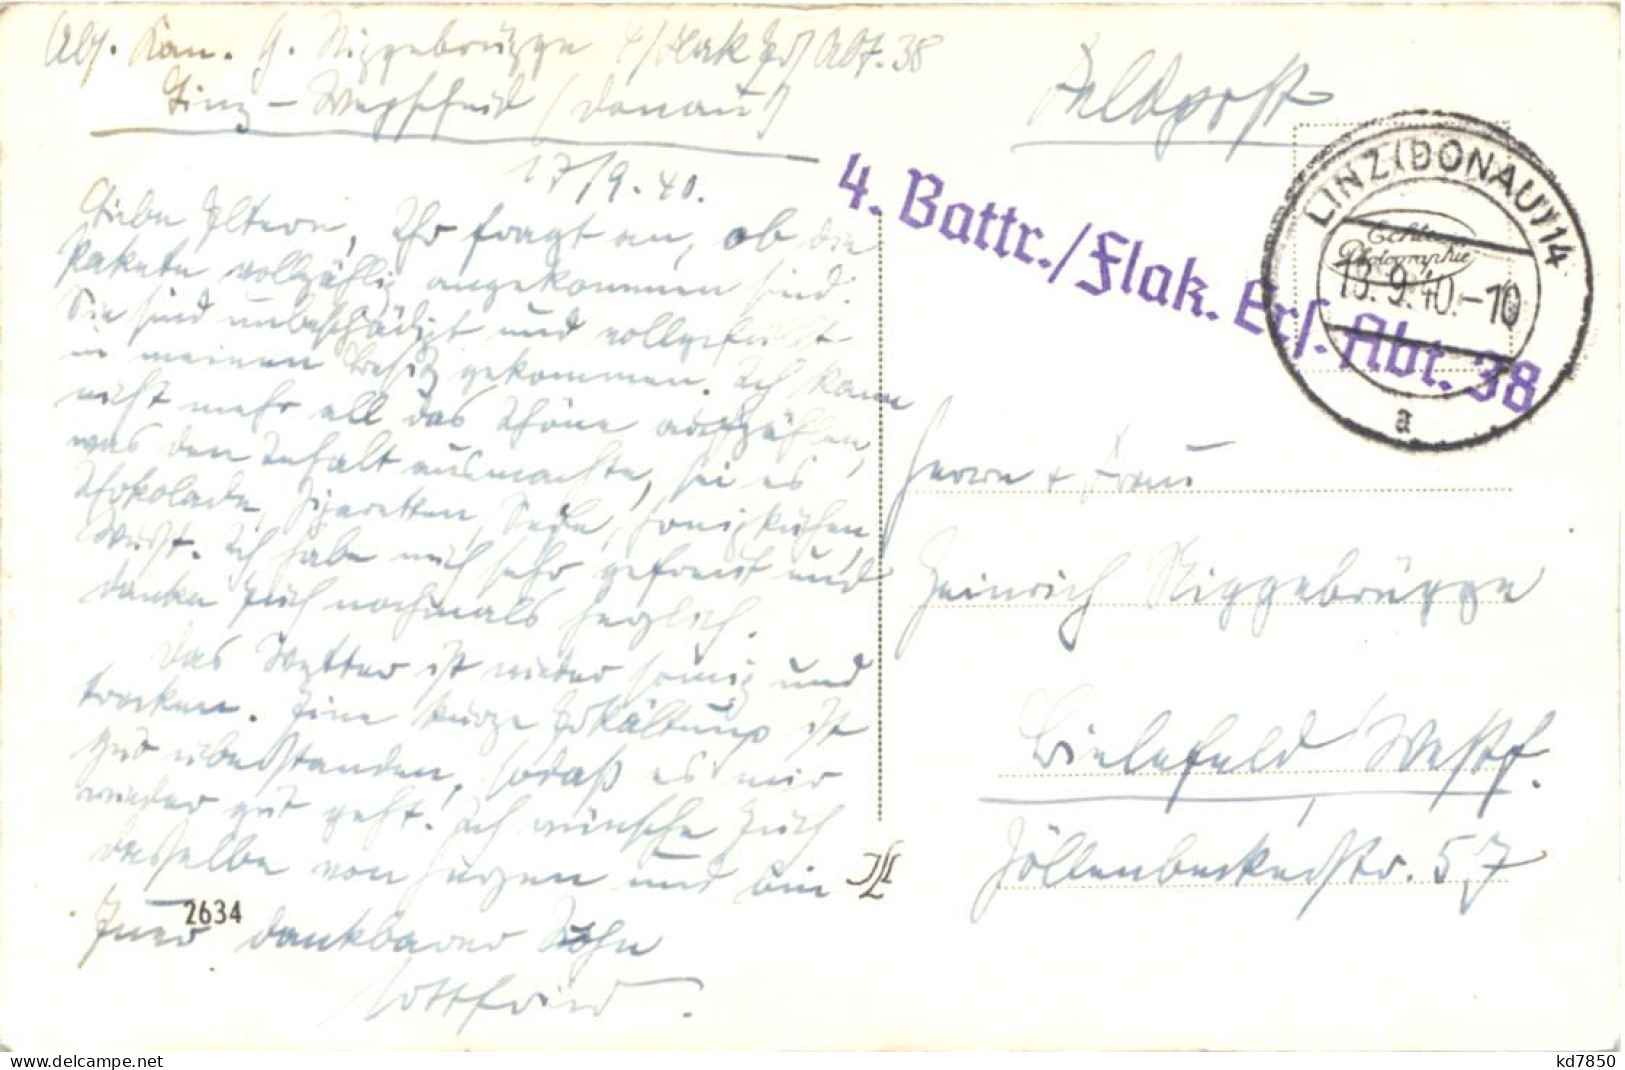 Abs. Kan. G. Niggebrügge 4/Flak Ers. Abt. 38
Linz - Wegscheid (Donau)
17/9. 40.
Liebe Eltern, Ihr fragt an, ob die
Pakete vollzählig angekommen sind.
Sie sind unbeschädigt und vollgefüllt
in meinen Besitz gekommen. Ich kann
nicht mehr all das Schöne aufzählen,
was den Inhalt ausmachte, sei es
Schokolade, Zigaretten, Seife, Honigkuchen,
Wurst. Ich habe mich sehr gefreut und
danke Euch nochmals herzlich.
Das Wetter ist wieder sonnig und
trocken. Eine kurze Erkältung ist
gut überstanden, sodaß es mir
wieder gut geht. Ich wünsche Euch
dasselbe von Herzen und bin
Euer dankbarer Sohn
Gottfried.
2634
Feldpost
4. Battr./Flak. Ers. Abt. 38
LINZ (DONAU) 14
.9.40.-10
a
Echte
Photographie
Herrn + Frau
Heinrich Niggebrügge
Bielefeld Westf.
Jöllenbeckerstr. 57
www.delcampe.net
kd7850